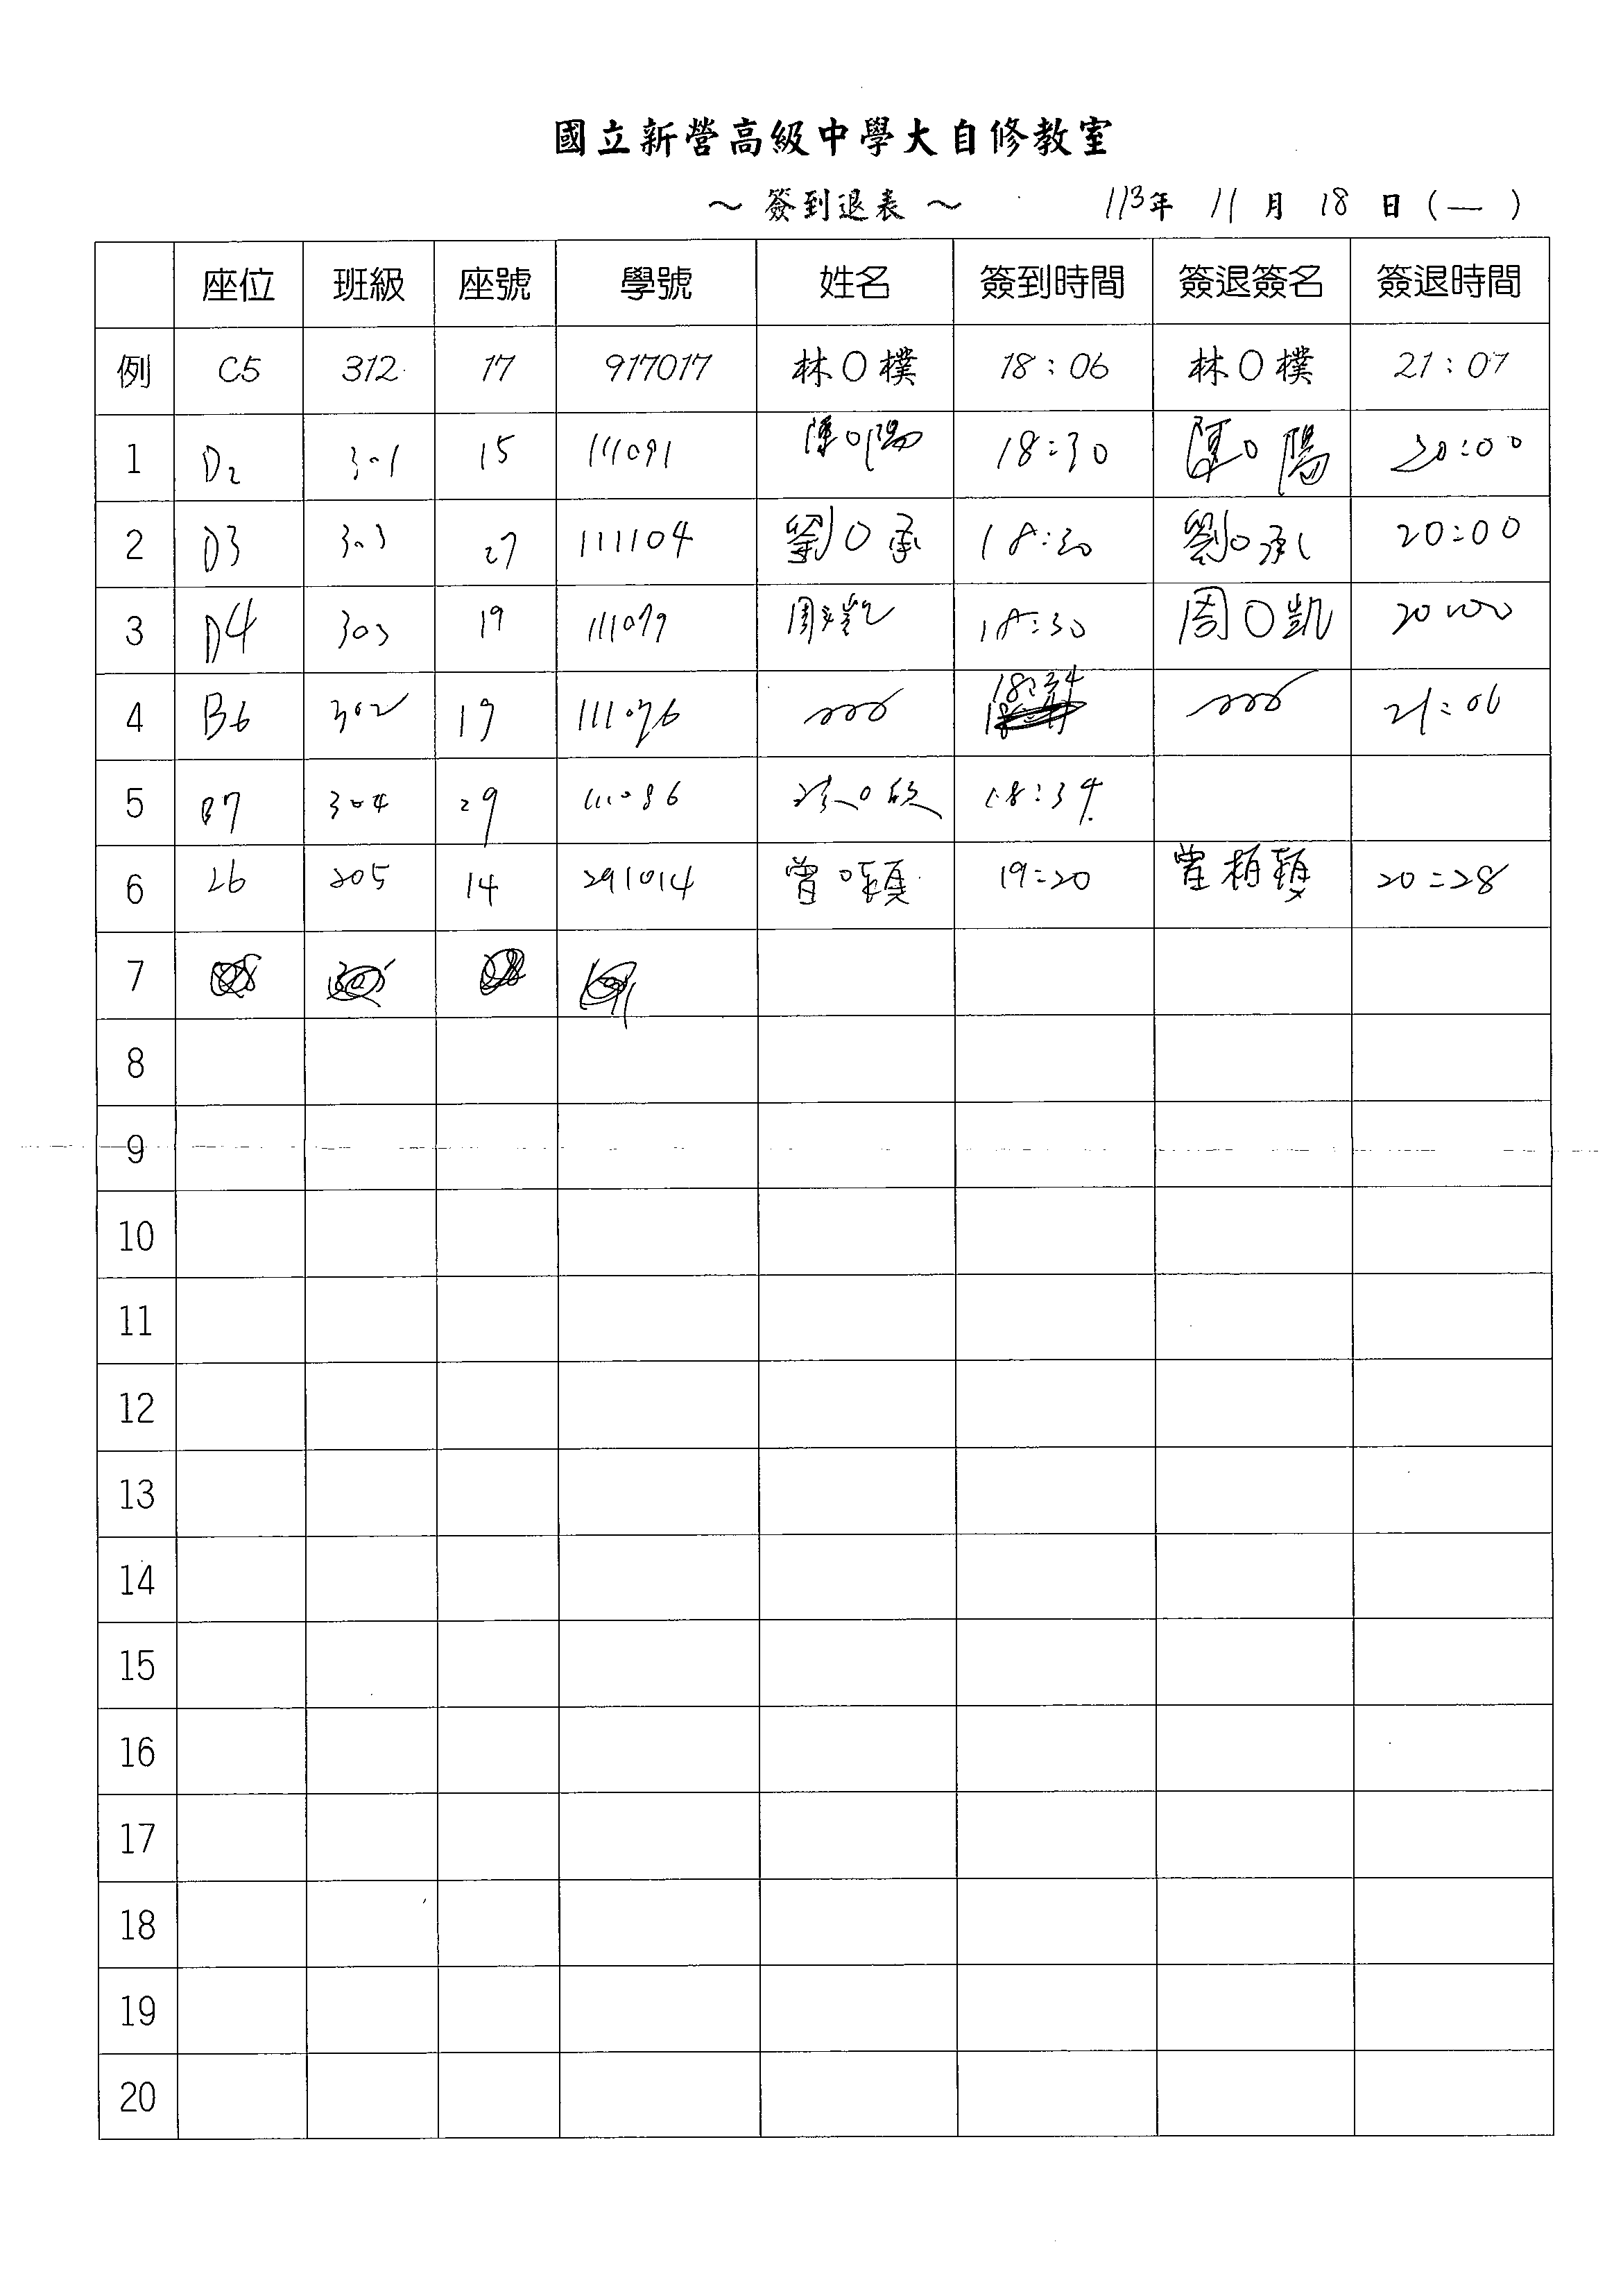 國立新營高級中學大自修教室
～ 簽到退表 ～ 113年 11月 18日(一)
座位 班級 座號 學號 姓名 簽到時間 簽退簽名 簽退時間
例 C5 312 17 917017 林O樸 18:06 林O樸 21:07
1 D2 301 15 111091 陳O陽 18:30 陳O陽 20:00
2 D3 303 27 111104 劉O承 18:30 劉O承 20:00
3 D4 303 19 周 凱 18:30 周O凱 20:00
4 B6 302 19 18:34 21:06
5 B7 304 29 111086 18:34
6 26 205 14 291014 曾O穎 19:20 曾 穎 20:28
7
8
9
10
11
12
13
14
15
16
17
18
19
20